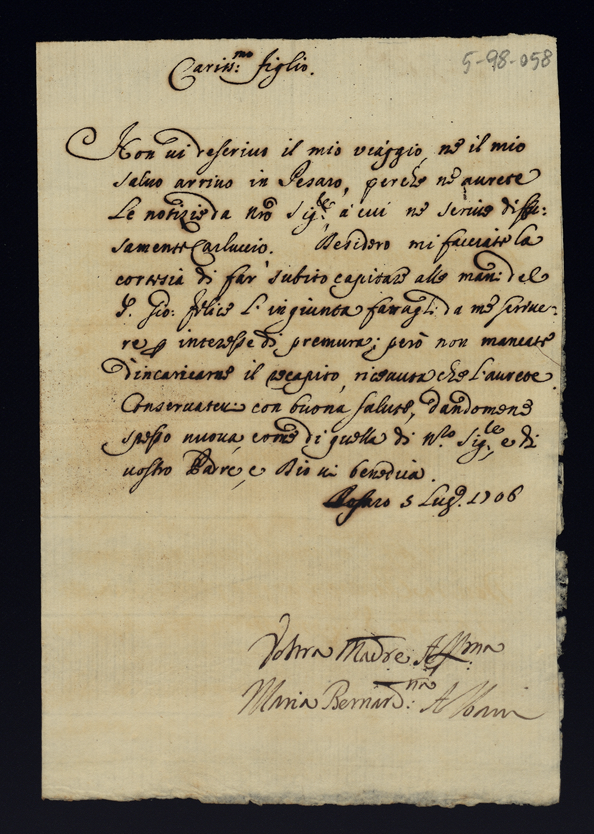 5-98-058
Cariss.mo figlio.
Non vi descrivo il mio viaggio, ne il mio
salvo arrivo in Pesaro, perche ne avrete
le notizie da Nro Sig.re à cui ne scrive diffu:
samente Carluccio. Desidero mi facciate la
cortesia di far subito capitare alle mani del
P. Gio: felice l'ingiunta da me scriue:
re interesse di premura; però non mancate
d'incaricarne il recapito, riceuuta che l'aurete.
Conseruateui con buona salute, dandomene
spesso nuova, come di quella di N.ro Sig.re, e di
vostro Padre, e Dio vi benedica.
Pesaro 5 Lug. 1706
Vostra Madre Aff.ma
Maria Bernard.na Albani